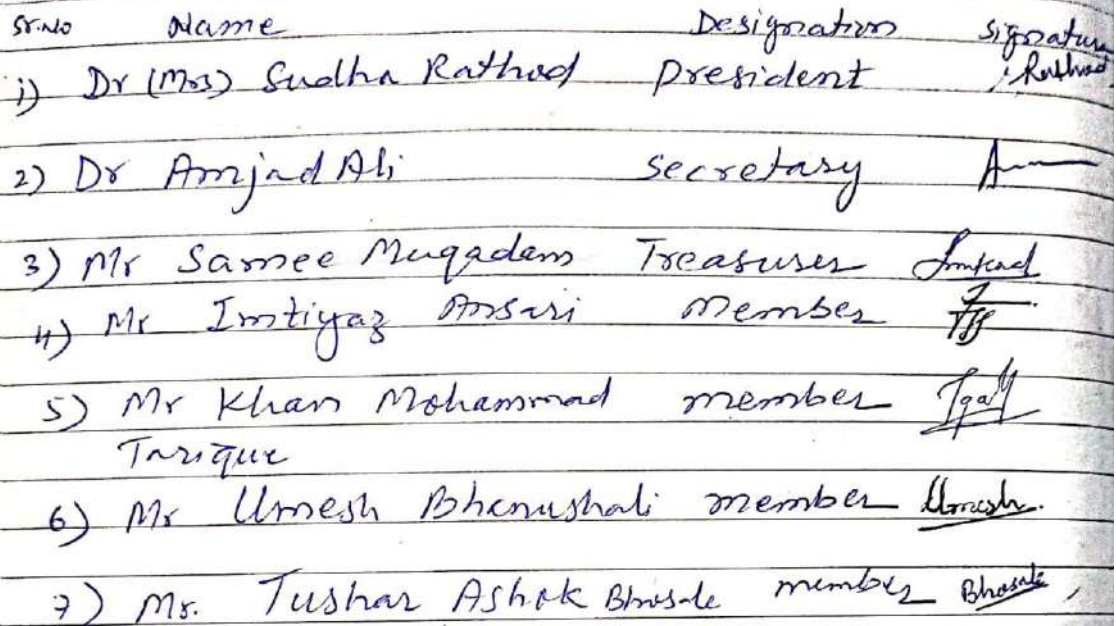 Sr.No Name Designation Signature
1) Dr (Mrs) Sudha Rathod President Rathod
2) Dr Amjad Ali Secretary
3) Mr Samee Muqadam Treasurer
4) Mr Imtiyaz Ansari Member
5) Mr Khan Mohammad member
Tarique
6) Mr Umesh Bhanushali member Umesh.
7) Mr. Tushar Ashok Bhosale member Bhosale